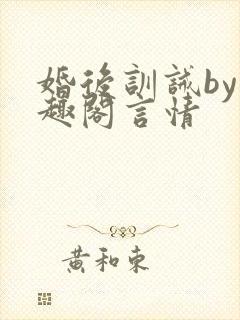 婚後訓誡by
趣閣言情
黃和東